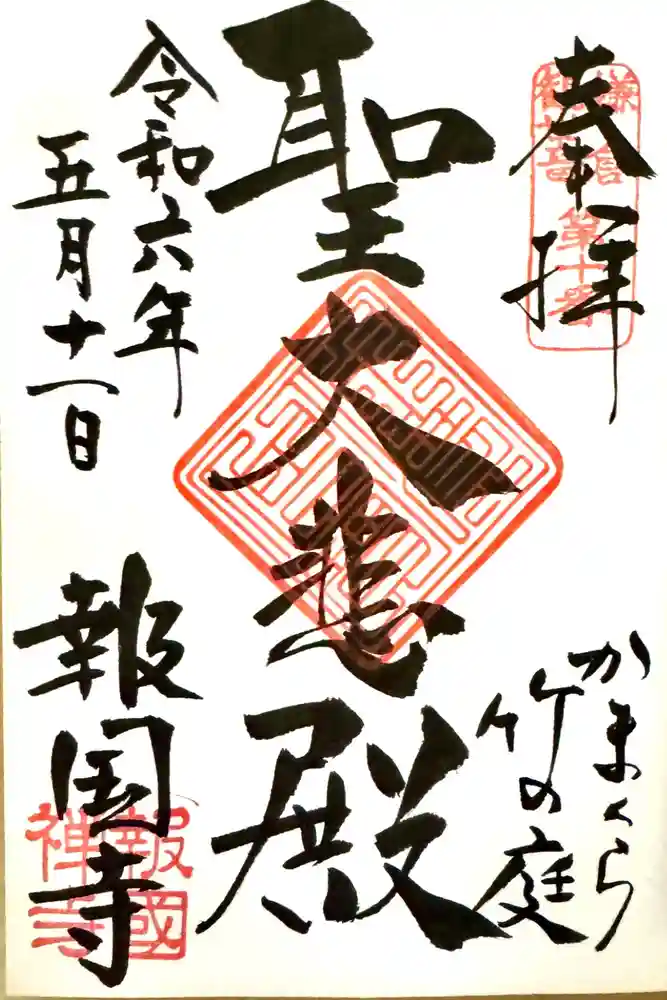 奉拝
鎌倉
観音
第十番
かまくら
竹の庭
聖大悲殿
令和六年
五月十一日
報国寺
報國
禅寺